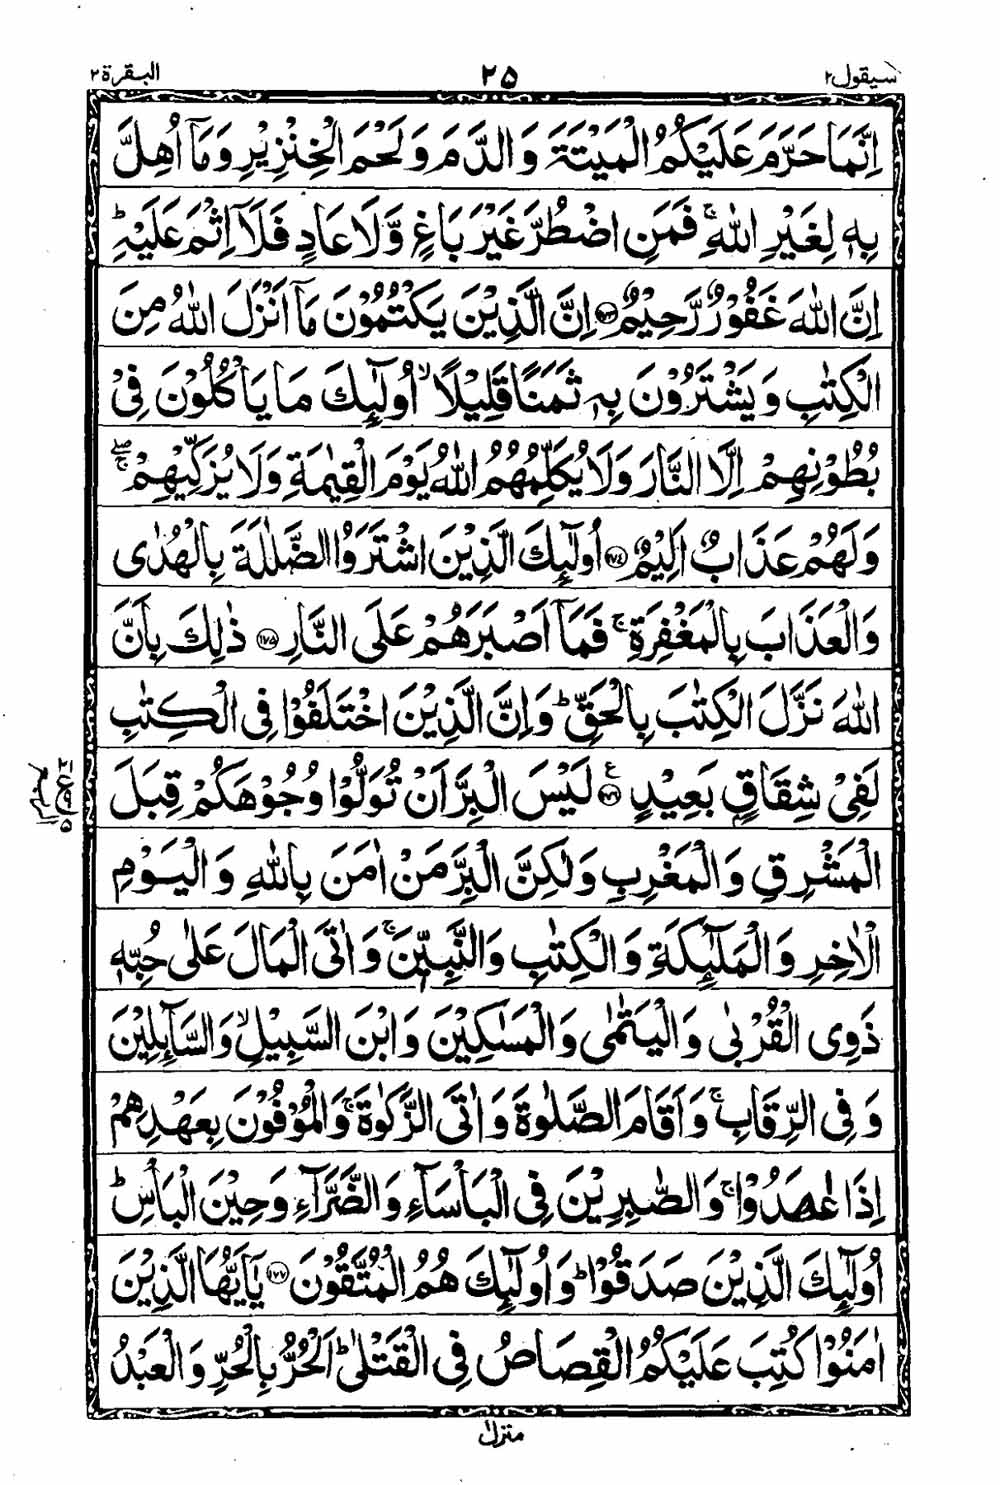 سيقول٢ ٢٥ البقرة٢
اِنَّمَا حَرَّمَ عَلَيْكُمُ الْمَيْتَةَ وَالدَّمَ وَلَحْمَ الْخِنْزِيْرِ وَمَآ اُهِلَّ
بِهٖ لِغَيْرِ اللّٰهِ ۚ فَمَنِ اضْطُرَّ غَيْرَ بَاغٍ وَّلَا عَادٍ فَلَآ اِثْمَ عَلَيْهِ ؕ
اِنَّ اللّٰهَ غَفُوْرٌ رَّحِيْمٌ ﴿۱۷۳﴾ اِنَّ الَّذِيْنَ يَكْتُمُوْنَ مَآ اَنْزَلَ اللّٰهُ مِنَ
الْكِتٰبِ وَيَشْتَرُوْنَ بِهٖ ثَمَنًا قَلِيْلًا ۙ اُولٰٓئِكَ مَا يَاْكُلُوْنَ فِيْ
بُطُوْنِهِمْ اِلَّا النَّارَ وَلَا يُكَلِّمُهُمُ اللّٰهُ يَوْمَ الْقِيٰمَةِ وَلَا يُزَكِّيْهِمْ ۚۖ
وَلَهُمْ عَذَابٌ اَلِيْمٌ ﴿۱۷۴﴾ اُولٰٓئِكَ الَّذِيْنَ اشْتَرَوُا الضَّلٰلَةَ بِالْهُدٰى
وَالْعَذَابَ بِالْمَغْفِرَةِ ۚ فَمَآ اَصْبَرَهُمْ عَلَى النَّارِ ﴿۱۷۵﴾ ذٰلِكَ بِاَنَّ
اللّٰهَ نَزَّلَ الْكِتٰبَ بِالْحَقِّ ؕ وَاِنَّ الَّذِيْنَ اخْتَلَفُوْا فِى الْكِتٰبِ
لَفِيْ شِقَاقٍۭ بَعِيْدٍ ﴿۱۷۶﴾ ع لَيْسَ الْبِرَّ اَنْ تُوَلُّوْا وُجُوْهَكُمْ قِبَلَ
الْمَشْرِقِ وَالْمَغْرِبِ وَلٰكِنَّ الْبِرَّ مَنْ اٰمَنَ بِاللّٰهِ وَالْيَوْمِ
الْاٰخِرِ وَالْمَلٰٓئِكَةِ وَالْكِتٰبِ وَالنَّبِيّٖنَ ۚ وَاٰتَى الْمَالَ عَلٰى حُبِّهٖ
ذَوِى الْقُرْبٰى وَالْيَتٰمٰى وَالْمَسٰكِيْنَ وَابْنَ السَّبِيْلِ ۙ وَالسَّآئِلِيْنَ
وَفِى الرِّقَابِ ۚ وَاَقَامَ الصَّلٰوةَ وَاٰتَى الزَّكٰوةَ ۚ وَالْمُوْفُوْنَ بِعَهْدِهِمْ
اِذَا عٰهَدُوْا ۚ وَالصّٰبِرِيْنَ فِى الْبَاْسَآءِ وَالضَّرَّآءِ وَحِيْنَ الْبَاْسِ ؕ
اُولٰٓئِكَ الَّذِيْنَ صَدَقُوْا ؕ وَاُولٰٓئِكَ هُمُ الْمُتَّقُوْنَ ﴿۱۷۷﴾ يٰٓاَيُّهَا الَّذِيْنَ
اٰمَنُوْا كُتِبَ عَلَيْكُمُ الْقِصَاصُ فِى الْقَتْلٰى ؕ اَلْحُرُّ بِالْحُرِّ وَالْعَبْدُ
منزل١